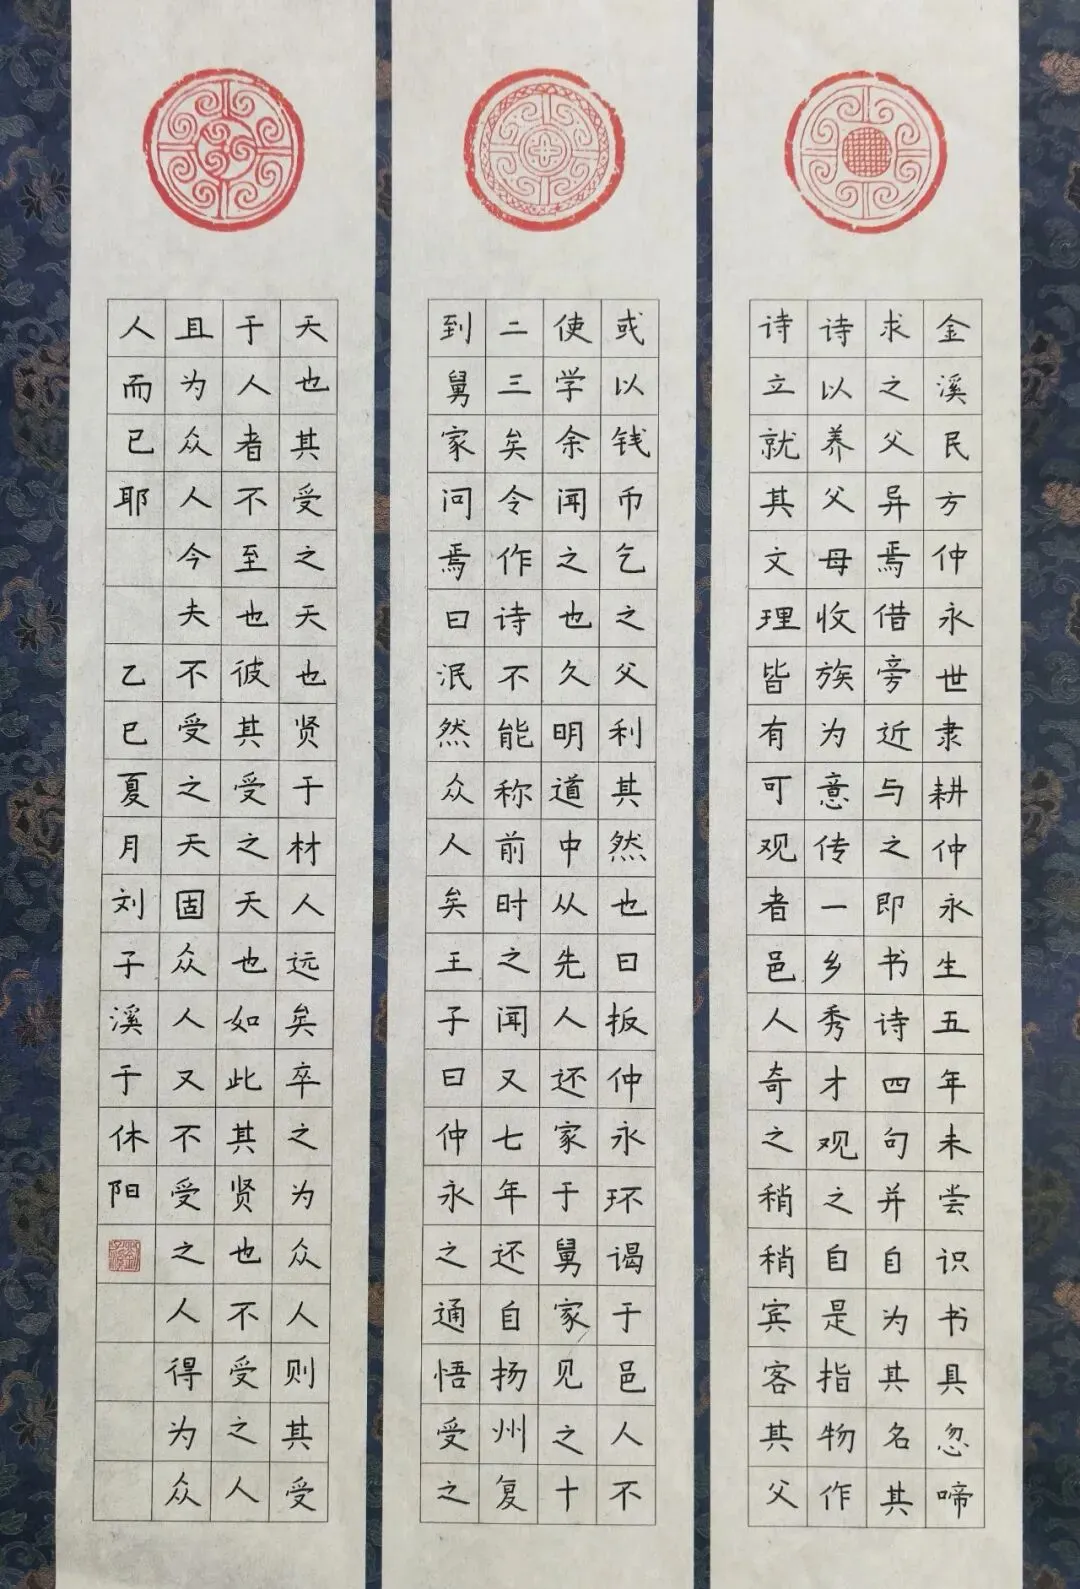 金溪民方仲永世隶耕仲永生五年未尝识书具忽啼
求之父异焉借旁近与之即书诗四句并自为其名其
诗以养父母收族为意传一乡秀才观之自是指物作
诗立就其文理皆有可观者邑人奇之稍稍宾客其父
或以钱币乞之父利其然也曰扳仲永环谒于邑人不
使学余闻之也久明道中从先人还家于舅家见之十
二三矣令作诗不能称前时之闻又七年还自扬州复
到舅家问焉曰泯然众人矣王子曰仲永之通悟受之
天也其受之天也贤于材人远矣卒之为众人则其受
于人者不至也彼其受之天也如此其贤也不受之人
且为众人今夫不受之天固众人又不受之人得为众
人而已耶 乙巳夏月刘子溪于休阳